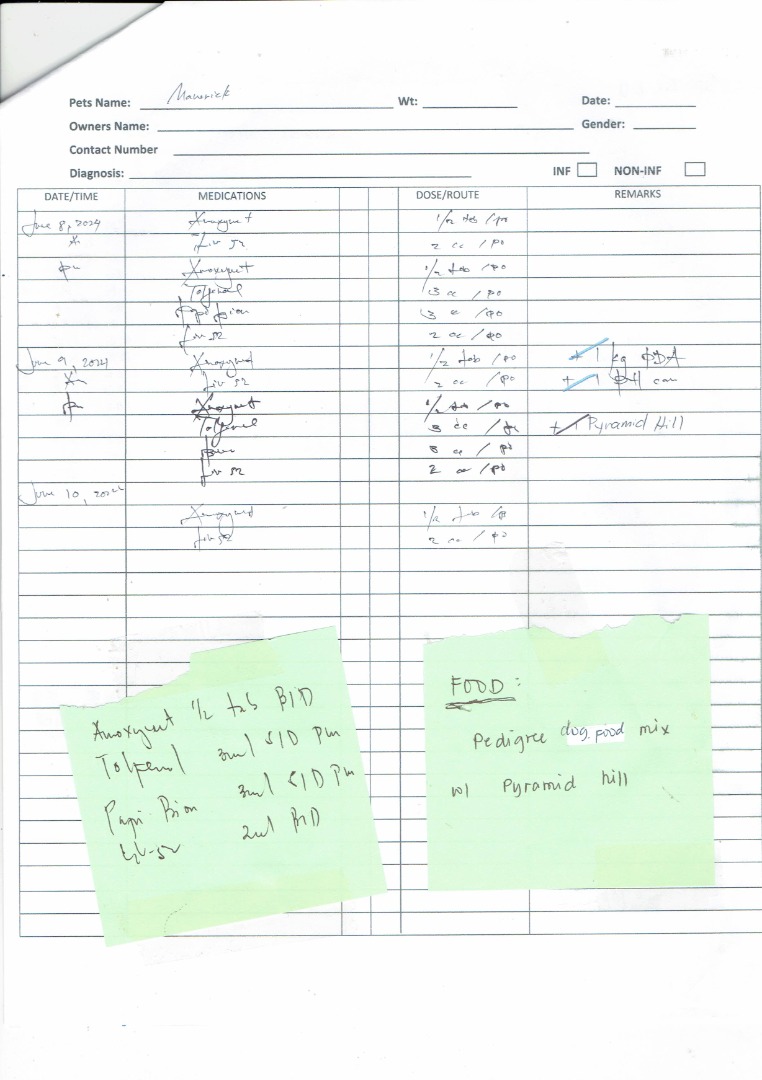 Pets Name: Maverick Wt: Date:
Owners Name: Gender:
Contact Number
Diagnosis: INF NON-INF
DATE/TIME MEDICATIONS DOSE/ROUTE REMARKS
June 8, 2024 Amoxyvet 1/2 tab /po
Am Liv 52 2 cc /po
pm Amoxyvet 1/2 tab /po
Tolfenol 3 cc /po
Papi bion 3 cc /po
Liv 52 2 cc /po
June 9, 2024 Amoxyvet 1/2 tab /po + 1 kg PDA
Am Liv 52 2 cc /po + 1 can
pm Amoxyvet 1/2 tab /po
Tolfenol 3 cc + 1 Pyramid Hill
3 cc / po
Liv 52 2 cc /po
June 10, 2024
Amoxyvet 1/2 tab /po
Liv 52 2 cc / po
Amoxyvet 1/2 tab BID
Tolfenol 3ml SID pm
Papi Bion 3ml SID pm
Liv-52 2ml BID
FOOD:
Pedigree dog food mix
w/ Pyramid hill